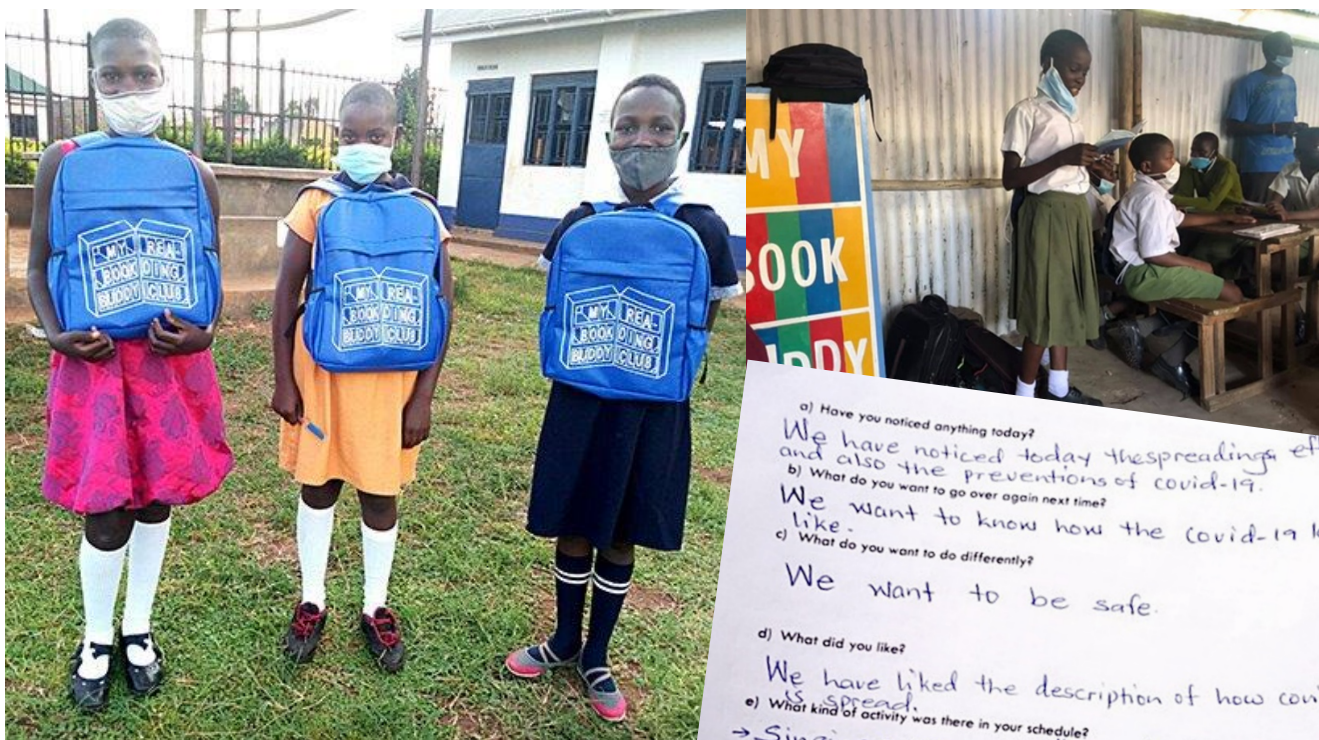 MY REA-
BOOK DING
BUDDY CLUB
MY REA-
BOOK DING
BUDDY CLUB
MY REA-
BOOK DING
BUDDY CLUB
MY
BOOK
BUDDY
a) Have you noticed anything today?
We have noticed today thespreadings
and also the preventions of covid-19.
b) What do you want to go over again next time?
We want to know how the covid-19
like.
c) What do you want to do differently?
We want to be safe.
d) What did you like?
We have liked the description of how
is spread.
e) What kind of activity was there in your schedule?